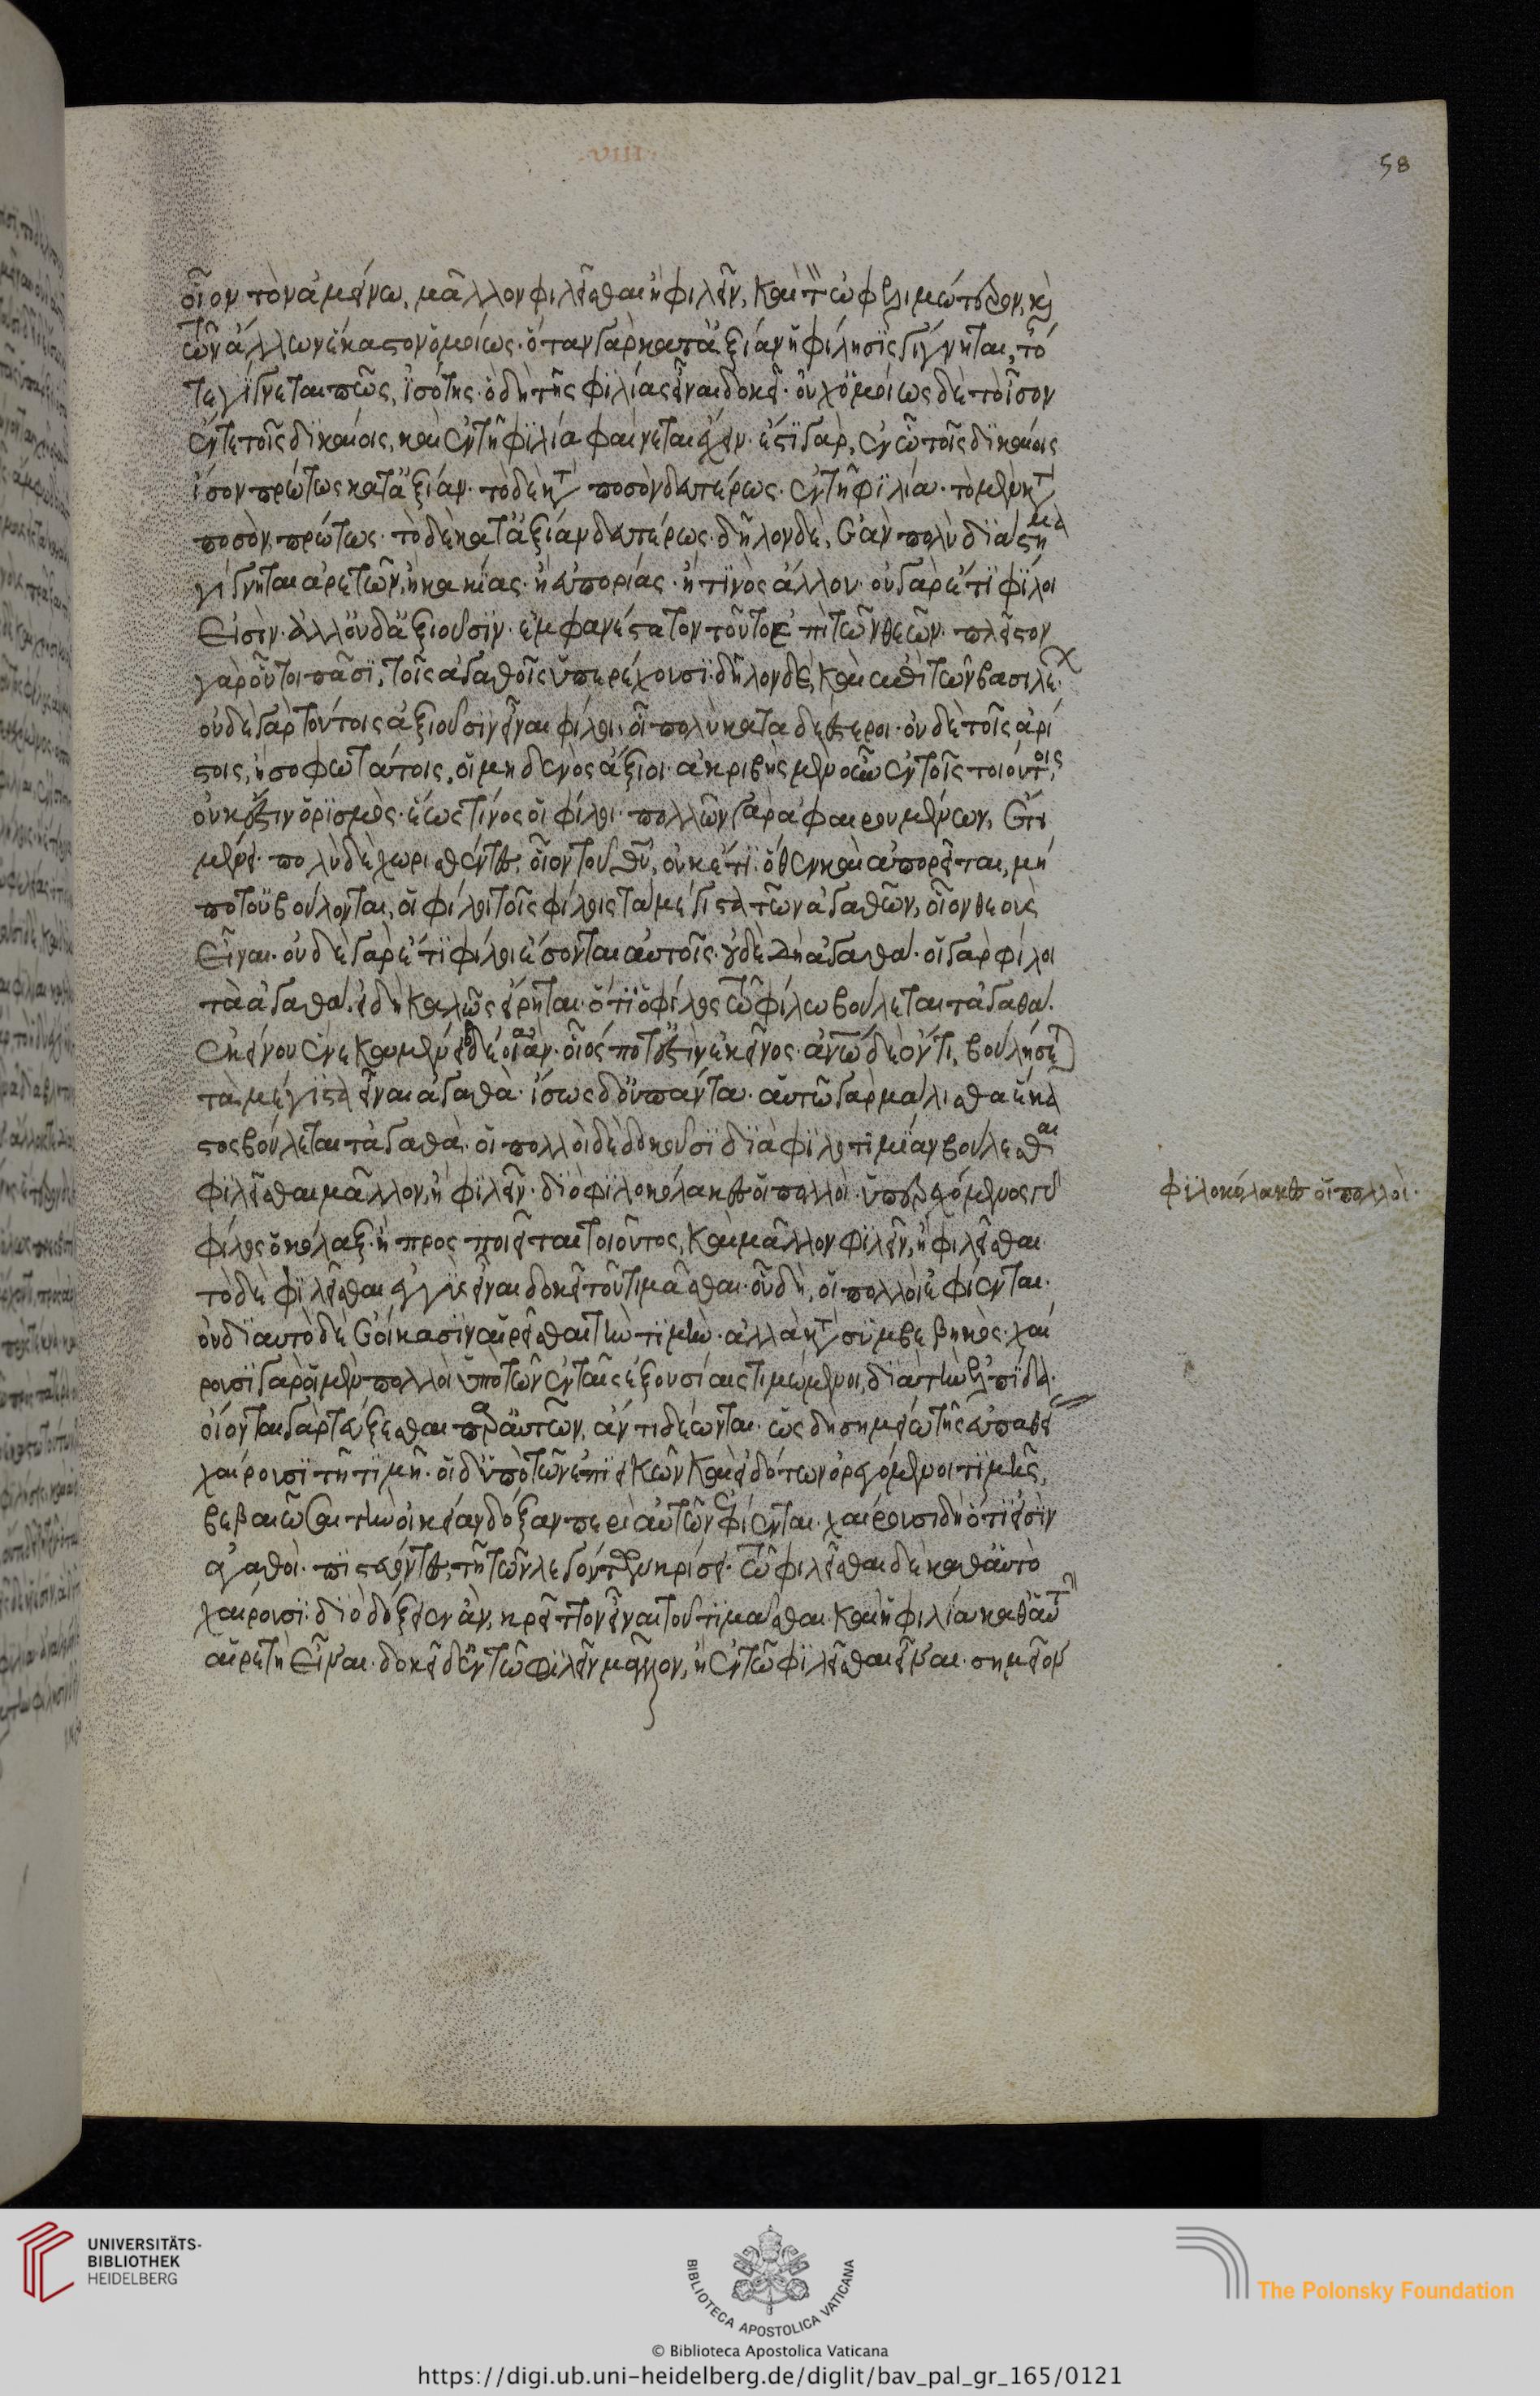 ·VIII·
58
οἷον τὸν ἀμείνω, μᾶλλον φιλεῖσθαι ἢ φιλεῖν, καὶ τὸν ὠφελιμώτερον, καὶ
τῶν ἄλλων ἕκαστον ὁμοίως· ὅταν γὰρ κατ' ἀξίαν ἡ φίλησις γίγνηται, τό
τε γίγνεται πῶς, ἰσότης· ὃ δὴ τῆς φιλίας εἶναι δοκεῖ· οὐχ ὁμοίως δὲ τὸ ἴσον
ἔν τε τοῖς δικαίοις, καὶ ἐν τῇ φιλίᾳ φαίνεται ἔχειν· ἔστι γὰρ, ἐν μὲν τοῖς δικαίοις
ἴσον πρώτως κατ' ἀξίαν· τὸ δὲ κατὰ ποσὸν δευτέρως· ἐν τῇ φιλίᾳ· τὸ μὲν κατὰ
ποσὸν, πρώτως· τὸ δὲ κατ' ἀξίαν δευτέρως· δῆλον δὲ, ἐὰν πολὺ διάστημα
γίγνηται ἀρετῶν, ἢ κακίας· ἢ εὐπορίας· ἤ τινος ἄλλου· οὐ γὰρ ἔτι φίλοι
εἰσίν· ἀλλ' οὐδ' ἀξιοῦσιν· ἐμφανέστατον τοῦτο ἐπὶ τῶν θεῶν· πλεῖστον
γὰρ οὗτοι πᾶσι, τοῖς ἀγαθοῖς ὑπερέχουσι· δῆλον δὲ, καὶ ἐπὶ τῶν βασιλέ·
οὐδὲ γὰρ τούτοις ἀξιοῦσιν εἶναι φίλοι· οἱ πολὺ καταδεέστεροι· οὐδὲ τοῖς ἀρί
στοις, ἢ σοφωτάτοις, οἱ μηδενὸς ἄξιοι· ἀκριβὴς μὲν οὖν ἐν τοῖς τοιούτοις,
οὐκ ἔστιν ὁρισμὸς· ἕως τίνος οἱ φίλοι· πολλῶν γὰρ ἀφαιρουμένων, ἔτι
μένει· πολὺ δὲ χωρισθέντος, οἷον τοῦ θεοῦ, οὐκέτι· ὅθεν καὶ ἀπορεῖται, μή
ποτ' οὐ βούλονται, οἱ φίλοι τοῖς φίλοις τὰ μέγιστα τῶν ἀγαθῶν, οἷον θεοὺς
εἶναι· οὐδὲ γὰρ ἔτι φίλοι ἔσονται αὐτοῖς· οὐδὲ δὴ ἀγαθά· οἱ γὰρ φίλοι
τὰ ἀγαθά· εἰ δὴ καλῶς εἴρηται· ὅτι ὁ φίλος τῷ φίλῳ βούλεται τἀγαθά·
ἐκείνου ἕνεκα μένειν δέοι ἂν· οἷός ποτ' ἐστὶν ἐκεῖνος· ἀνθρώπῳ δὲ ὄντι, βουλήσε
τὰ μέγιστα εἶναι ἀγαθὰ· ἴσως δ' οὐ πάντα· αὑτῷ γὰρ μάλισθ' ἕκα
στος βούλεται τἀγαθὰ· οἱ πολλοὶ δὲ δοκοῦσι διὰ φιλοτιμίαν βούλεσθαι
φιλεῖσθαι μᾶλλον, ἢ φιλεῖν· διὸ φιλοκόλακες οἱ πολλοὶ· ὑπερεχόμενος γὰρ
φίλος ὁ κόλαξ· ἢ προσποιεῖται τοιοῦτος, καὶ μᾶλλον φιλεῖν, ἢ φιλεῖσθαι
τὸ δὲ φιλεῖσθαι ἐγγὺς εἶναι δοκεῖ τοῦ τιμᾶσθαι· οὗ δὴ, οἱ πολλοὶ ἐφίενται·
οὐ δι' αὐτὸ δὲ ἐοίκασιν αἱρεῖσθαι τὴν τιμὴν· ἀλλὰ κατὰ συμβεβηκός· χαί
ρουσι γὰρ οἱ μὲν πολλοὶ ὑπὸ τῶν ἐν ταῖς ἐξουσίαις τιμώμενοι, διὰ τὴν ἐλπίδα·
οἴονται γὰρ τεύξεσθαι παρ' αὐτῶν, ἄν τι δέωνται· ὡς δὴ σημείῳ τῆς εὐπαθεί
χαίρουσι τῇ τιμῇ· οἱ δ' ὑπὸ τῶν ἐπιεικῶν καὶ εἰδότων ὀρεγόμενοι τιμῆς,
βεβαιῶσαι τὴν οἰκείαν δόξαν περὶ αὑτῶν ἐφίενται· χαίρουσι δὴ ὅτι εἰσὶν
ἀγαθοὶ· πιστεύοντες τῇ τῶν λεγόντων κρίσει· τῷ φιλεῖσθαι δὲ καθ' αὑτὸ
χαίρουσι· διὸ δόξειεν ἂν, κρεῖττον εἶναι τοῦ τιμᾶσθαι· καὶ ἡ φιλία καθ' αὑτὴν
αἱρετὴ εἶναι· δοκεῖ δ' ἐν τῷ φιλεῖν μᾶλλον, ἢ ἐν τῷ φιλεῖσθαι εἶναι· σημεῖον
φιλοκόλακες οἱ πολλοὶ·
UNIVERSITÄTS-
BIBLIOTHEK
HEIDELBERG
BIBLIOTECA APOSTOLICA VATICANA
The Polonsky Foundation
© Biblioteca Apostolica Vaticana
https://digi.ub.uni-heidelberg.de/diglit/bav_pal_gr_165/0121